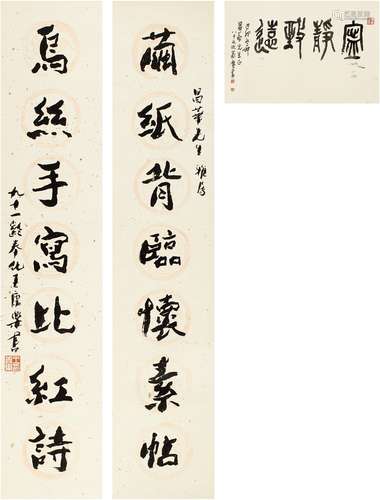 繭紙背臨懷素帖
昌華先生雅屬
烏絲手寫比紅詩
九十一齡奉化王康樂書
寧靜致遠